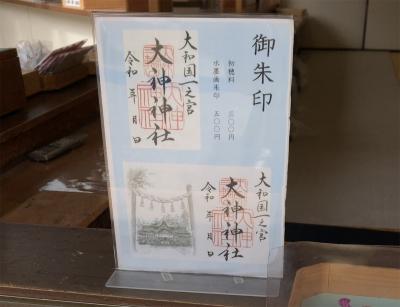 御朱印
初穂料 三〇〇円
水墨画朱印 五〇〇円
大和国一之宮
大神神社
令和 年 月 日
大和国一之宮
大神神社
令和 年 月 日